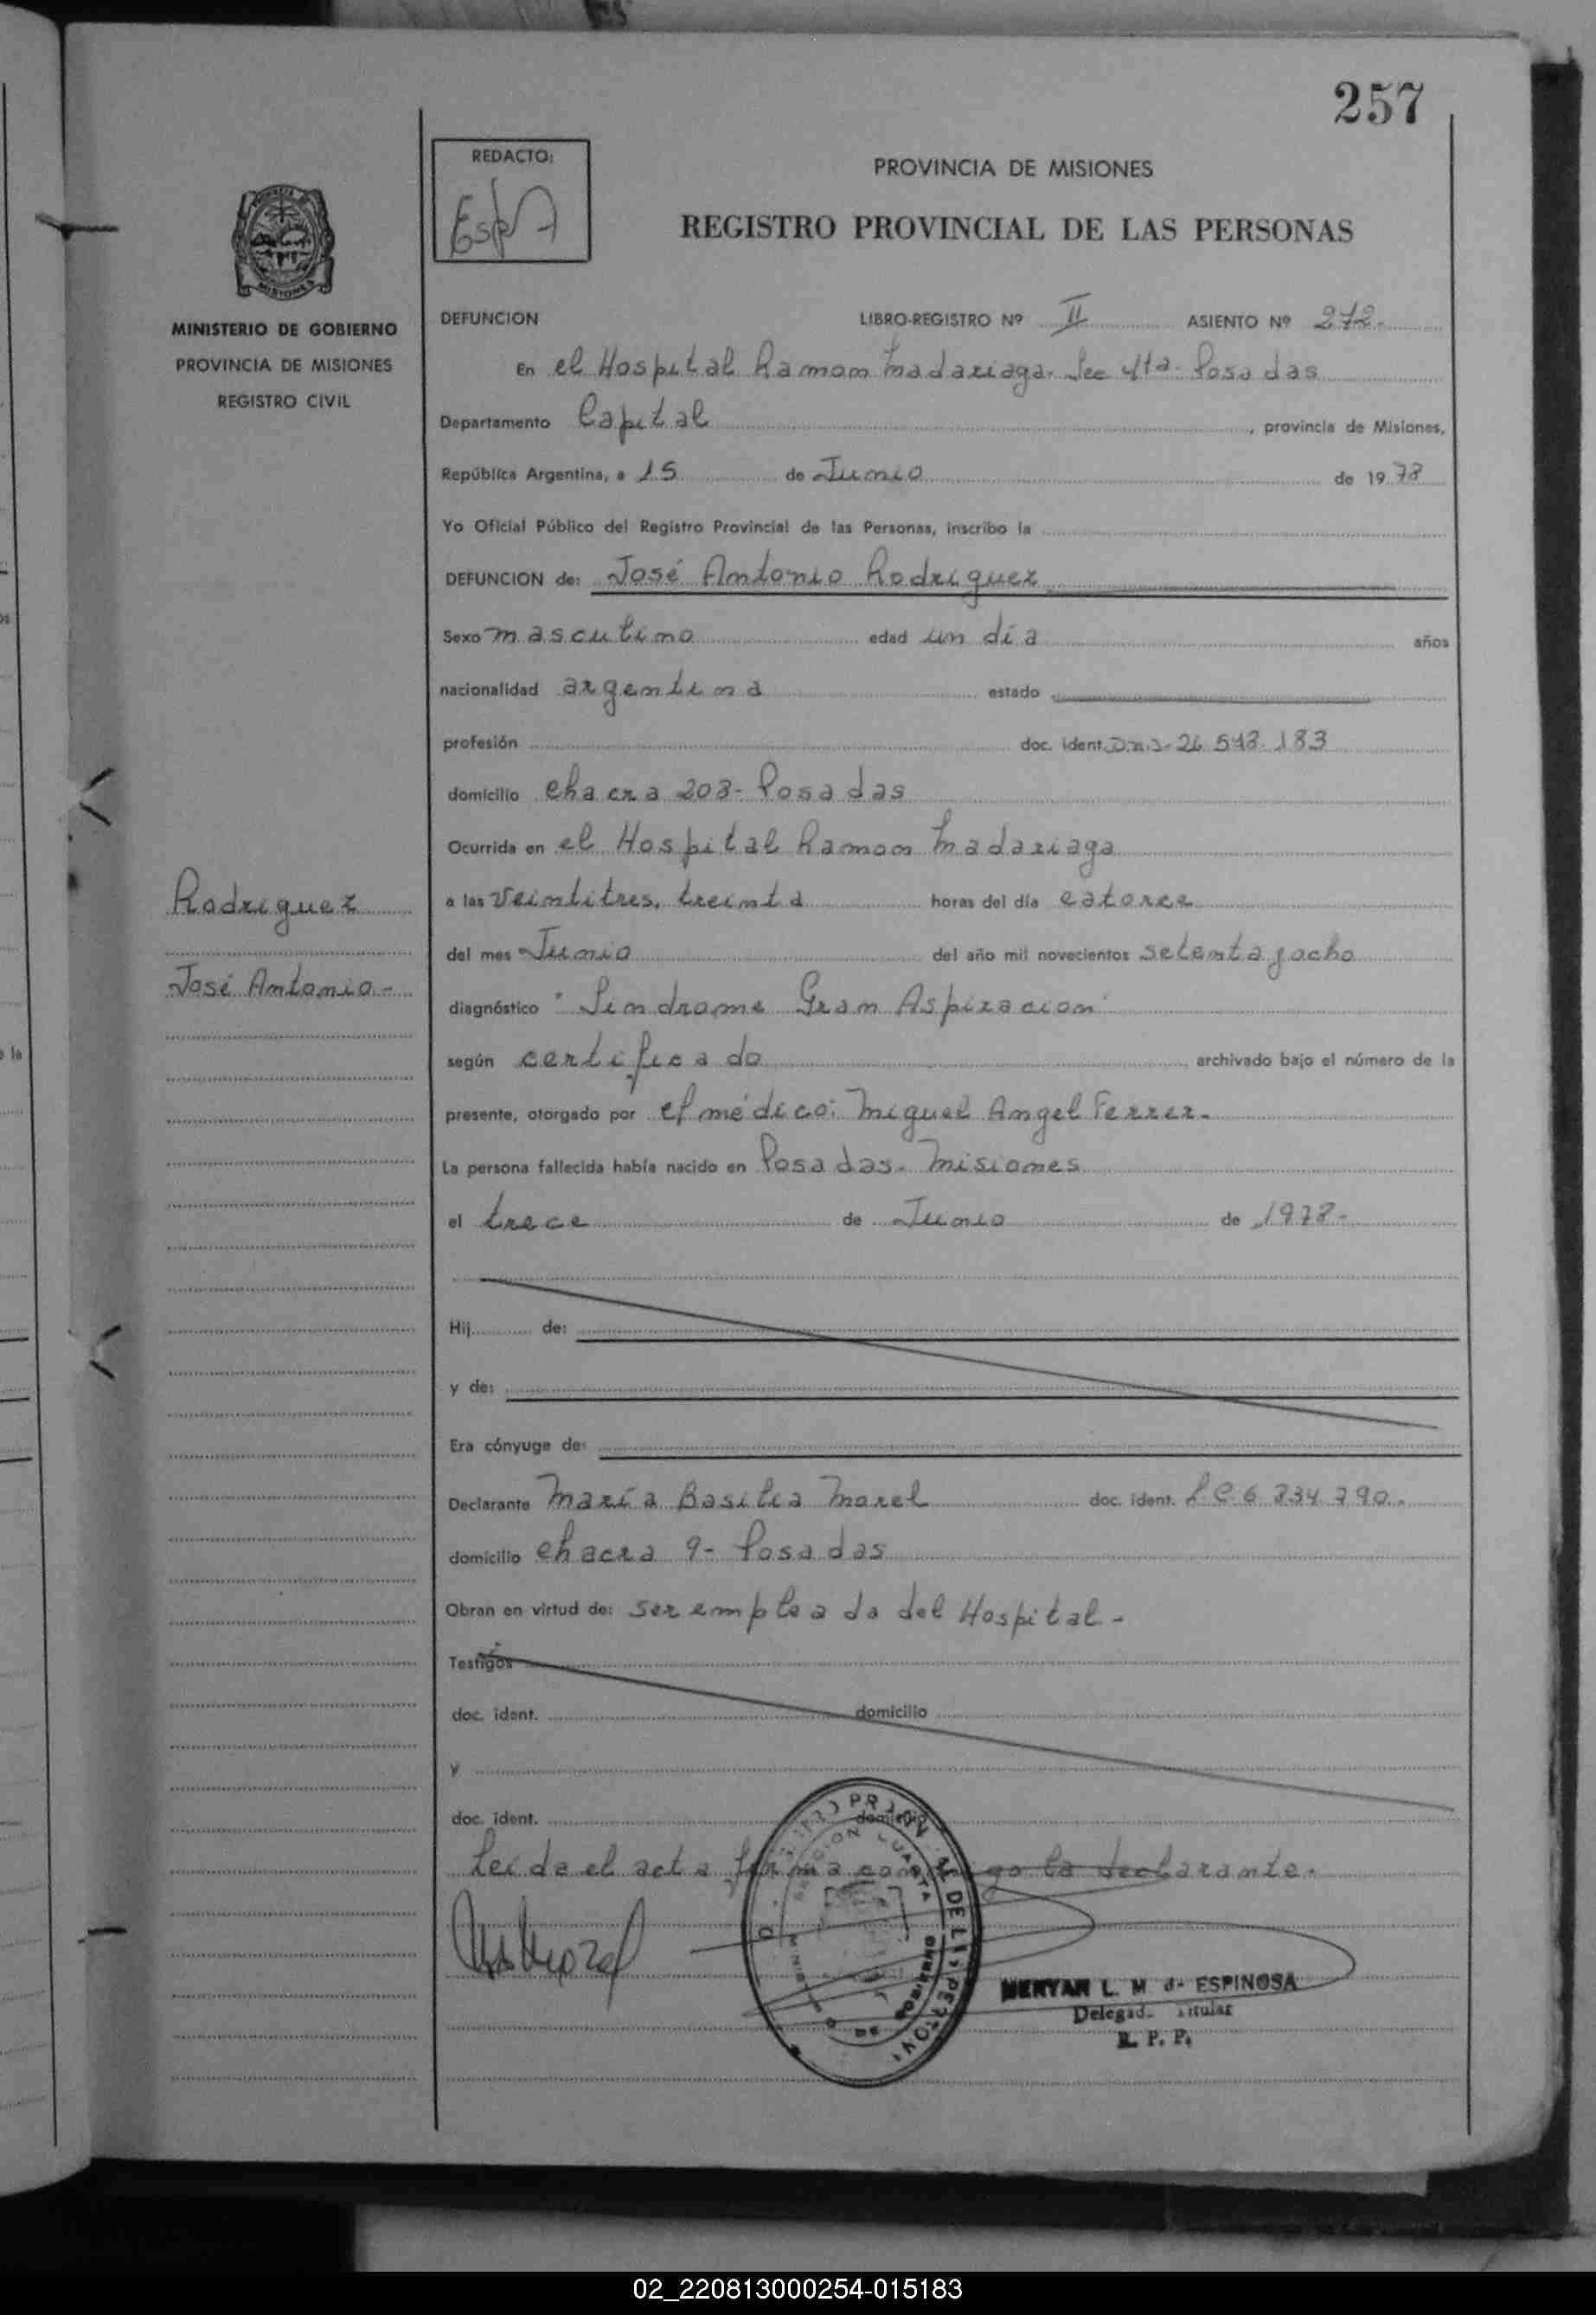 257
REDACTO:
PROVINCIA DE MISIONES
REGISTRO PROVINCIAL DE LAS PERSONAS
MISIONES
MINISTERIO DE GOBIERNO
PROVINCIA DE MISIONES
REGISTRO CIVIL
DEFUNCION LIBRO-REGISTRO Nº II ASIENTO Nº 272-
En el Hospital Ramon Madariaga- Sec 4ta- Posadas
Departamento Capital, provincia de Misiones,
República Argentina, a 15 de Junio de 1978
Yo Oficial Público del Registro Provincial de las Personas, inscribo la
DEFUNCION de: José Antonio Rodriguez
Sexo masculino edad un día años
nacionalidad argentina estado
profesión doc. ident. D.N.I- 26.548.183
domicilio chacra 203- Posadas
Ocurrida en el Hospital Ramon Madariaga
a las veintitres, treinta horas del día catorce
del mes Junio del año mil novecientos setenta y ocho
diagnóstico "Sindrome Gran Aspiracion"
según certificado, archivado bajo el número de la
presente, otorgado por el médico: Miguel Angel Ferrer-
La persona fallecida había nacido en Posadas- Misiones
el trece de Junio de 1978-
Hij de:
y de:
Era cónyuge de:
Declarante María Basilia Morel doc. ident. L C 6.734.790.
domicilio chacra 9- Posadas
Obran en virtud de: ser empleada del Hospital-
Testigos
doc. ident. domicilio
y
doc. ident. domicilio
Leída el acta firma conmigo la declarante.
Rodriguez
José Antonio-
SECCION CUARTA
MINISTERIO DE GOBIERNO
MERYAN L. M. de ESPINOSA
Delegada Titular
R. P. P.
02_220813000254-015183